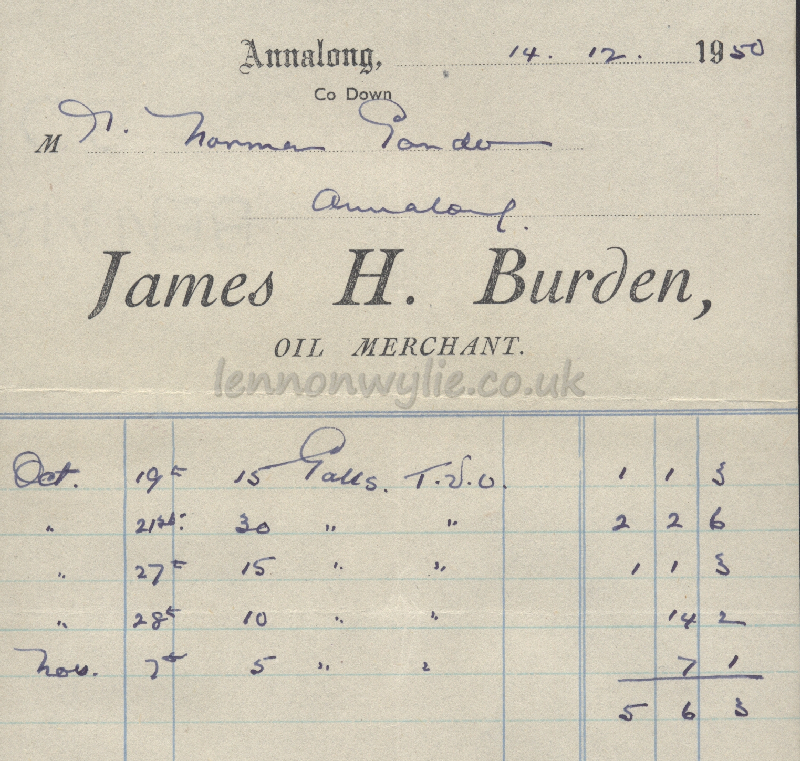 Annalong, 14. 12. 1950
Co Down
M r. Norman Gordon
Annalong.
James H. Burden,
OIL MERCHANT.
lennonwylie.co.uk
Oct. 19th 15 Galls. T.V.O. 1 1 3
" 21st. 30 " " 2 2 6
" 27th 15 " " 1 1 3
" 28th 10 " " 14 2
Nov. 7th 5 " " 7 1
5 6 3